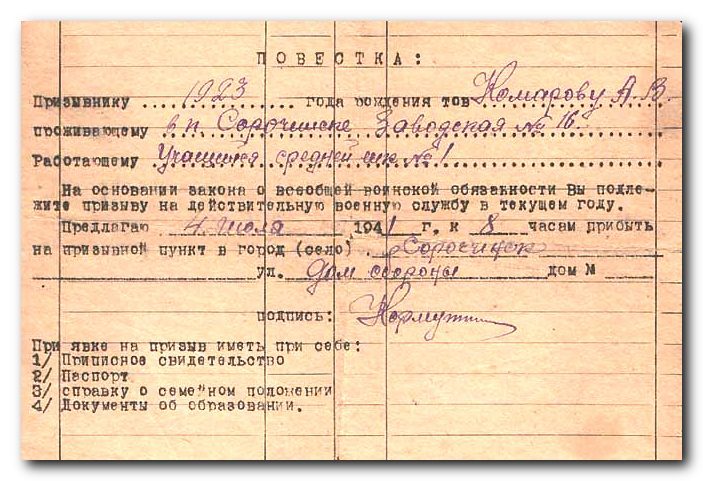 ПОВЕСТКА:
Призывнику ....1923.... года рождения тов. Комарову А.В.
проживающему в п. Сорочинске Заводская № 16.
Работающему Учащийся средней шк №1
На основании закона о всеобщей воинской обязанности Вы подле-
жите призыву на действительную военную службу в текущем году.
Предлагаю 4 июля 1941 г. к 8 часам прибыть
на призывной пункт в город (село) Сорочинск
ул. Дом обороны дом №
подпись:
При явке на призыв иметь при себе:
1/ Приписное свидетельство
2/ Паспорт
3/ справку о семейном положении
4/ Документы об образовании.